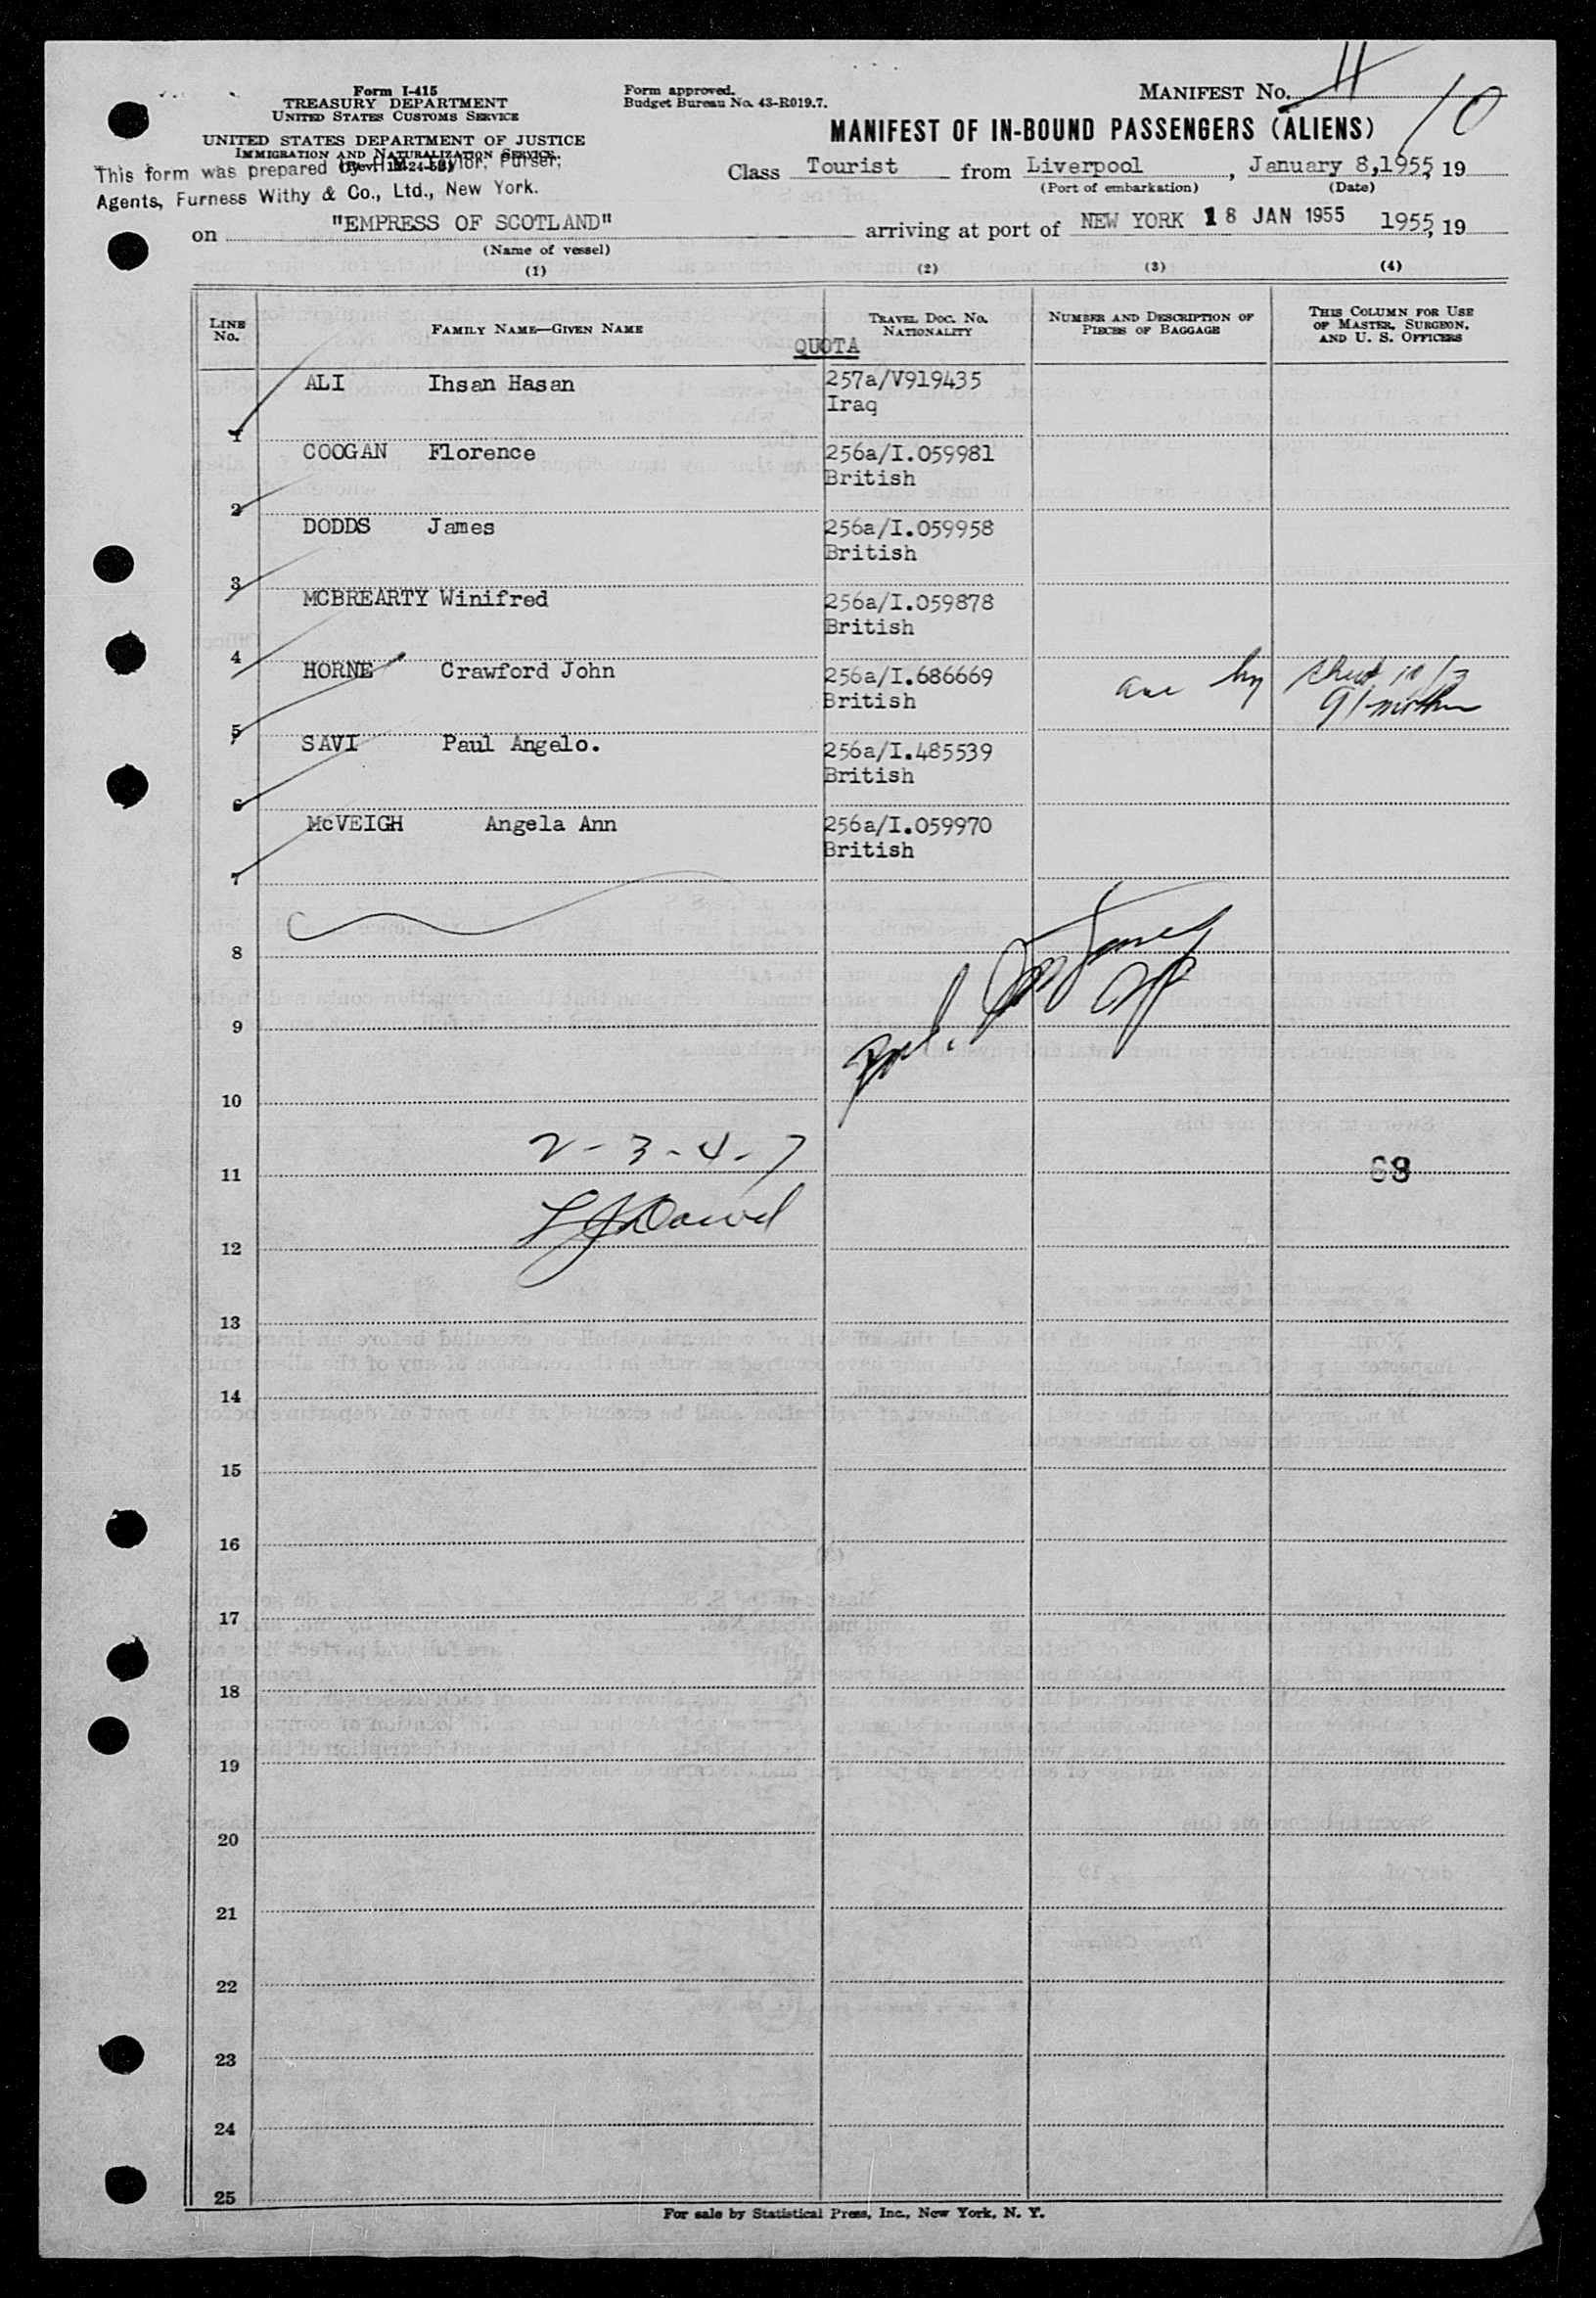 Form I-415
TREASURY DEPARTMENT
UNITED STATES CUSTOMS SERVICE
UNITED STATES DEPARTMENT OF JUSTICE
IMMIGRATION AND NATURALIZATION SERVICE
This form was prepared by H. Taylor, Purser,
Agents, Furness Withy & Co., Ltd., New York.
Form approved.
Budget Bureau No. 43-R019.7.
MANIFEST No. 11
10
MANIFEST OF IN-BOUND PASSENGERS (ALIENS)
Class Tourist from Liverpool, January 8,1955, 19
(Port of embarkation) (Date)
on "EMPRESS OF SCOTLAND" arriving at port of NEW YORK 18 JAN 1955 1955, 19
(Name of vessel)
(1) (2) (3) (4)
LINE No. FAMILY NAME—GIVEN NAME TRAVEL DOC. No. NATIONALITY NUMBER AND DESCRIPTION OF PIECES OF BAGGAGE THIS COLUMN FOR USE OF MASTER, SURGEON, AND U. S. OFFICERS
QUOTA
ALI Ihsan Hasan 257a/V919435
Iraq
1
COOGAN Florence 256a/I.059981
British
2
DODDS James 256a/I.059958
British
3
MCBREARTY Winifred 256a/I.059878
British
4
HORNE Crawford John 256a/I.686669
British
5
SAVI Paul Angelo. 256a/I.485539
British
6
McVEIGH Angela Ann 256a/I.059970
British
7
8
9
10
2-3-4-7
11 68
12
13
14
15
16
17
18
19
20
21
22
23
24
25
For sale by Statistical Press, Inc., New York, N. Y.